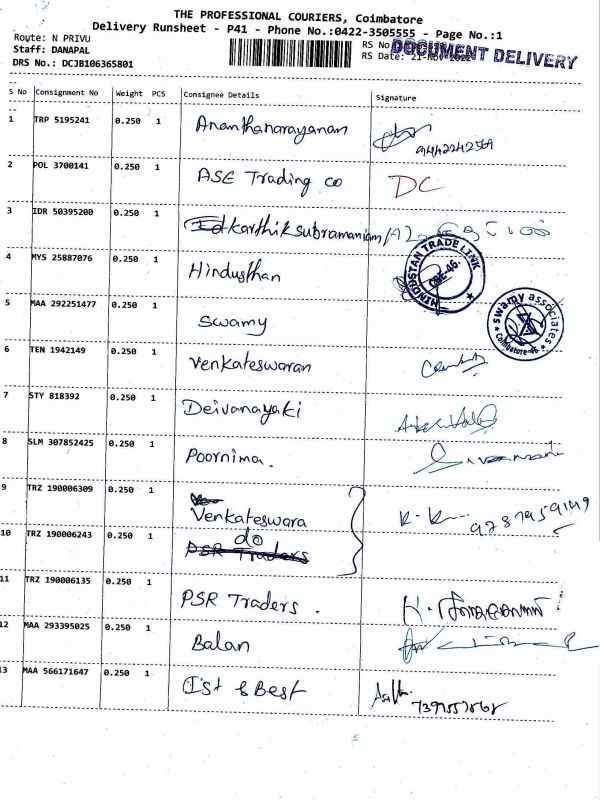 THE PROFESSIONAL COURIERS, Coimbatore
Delivery Runsheet - P41 - Phone No.:0422-3505555 - Page No.:1
Route: N PRIVU
RS No
DOCUMENT DELIVERY
Staff: DANAPAL
RS Date: 21-Nov-2022
DRS No.: DCJB106365801
S No Consignment No Weight PCS Consignee Details Signature
1 TRP 5195241 0.250 1 Ananthanarayanan
9442242569
2 POL 3700141 0.250 1 ASE Trading co DC
3 IDR 50395200 0.250 1 karthik subramaniam
4 MYS 25887076 0.250 1 Hindusthan
HINDUSTAN TRADE LINK CBE-46.
5 MAA 292251477 0.250 1 Swamy
swamy associates Coimbatore-46
6 TEN 1942149 0.250 1 Venkateswaran
7 STY 818392 0.250 1 Deivanayaki
8 SLM 307852425 0.250 1 Poornima.
9 TRZ 190006309 0.250 1 Venkateswara
9787959149
10 TRZ 190006243 0.250 1 do
PSR Traders
11 TRZ 190006135 0.250 1 PSR Traders.
12 MAA 293395025 0.250 1 Balan
13 MAA 566171647 0.250 1 Ist & Best